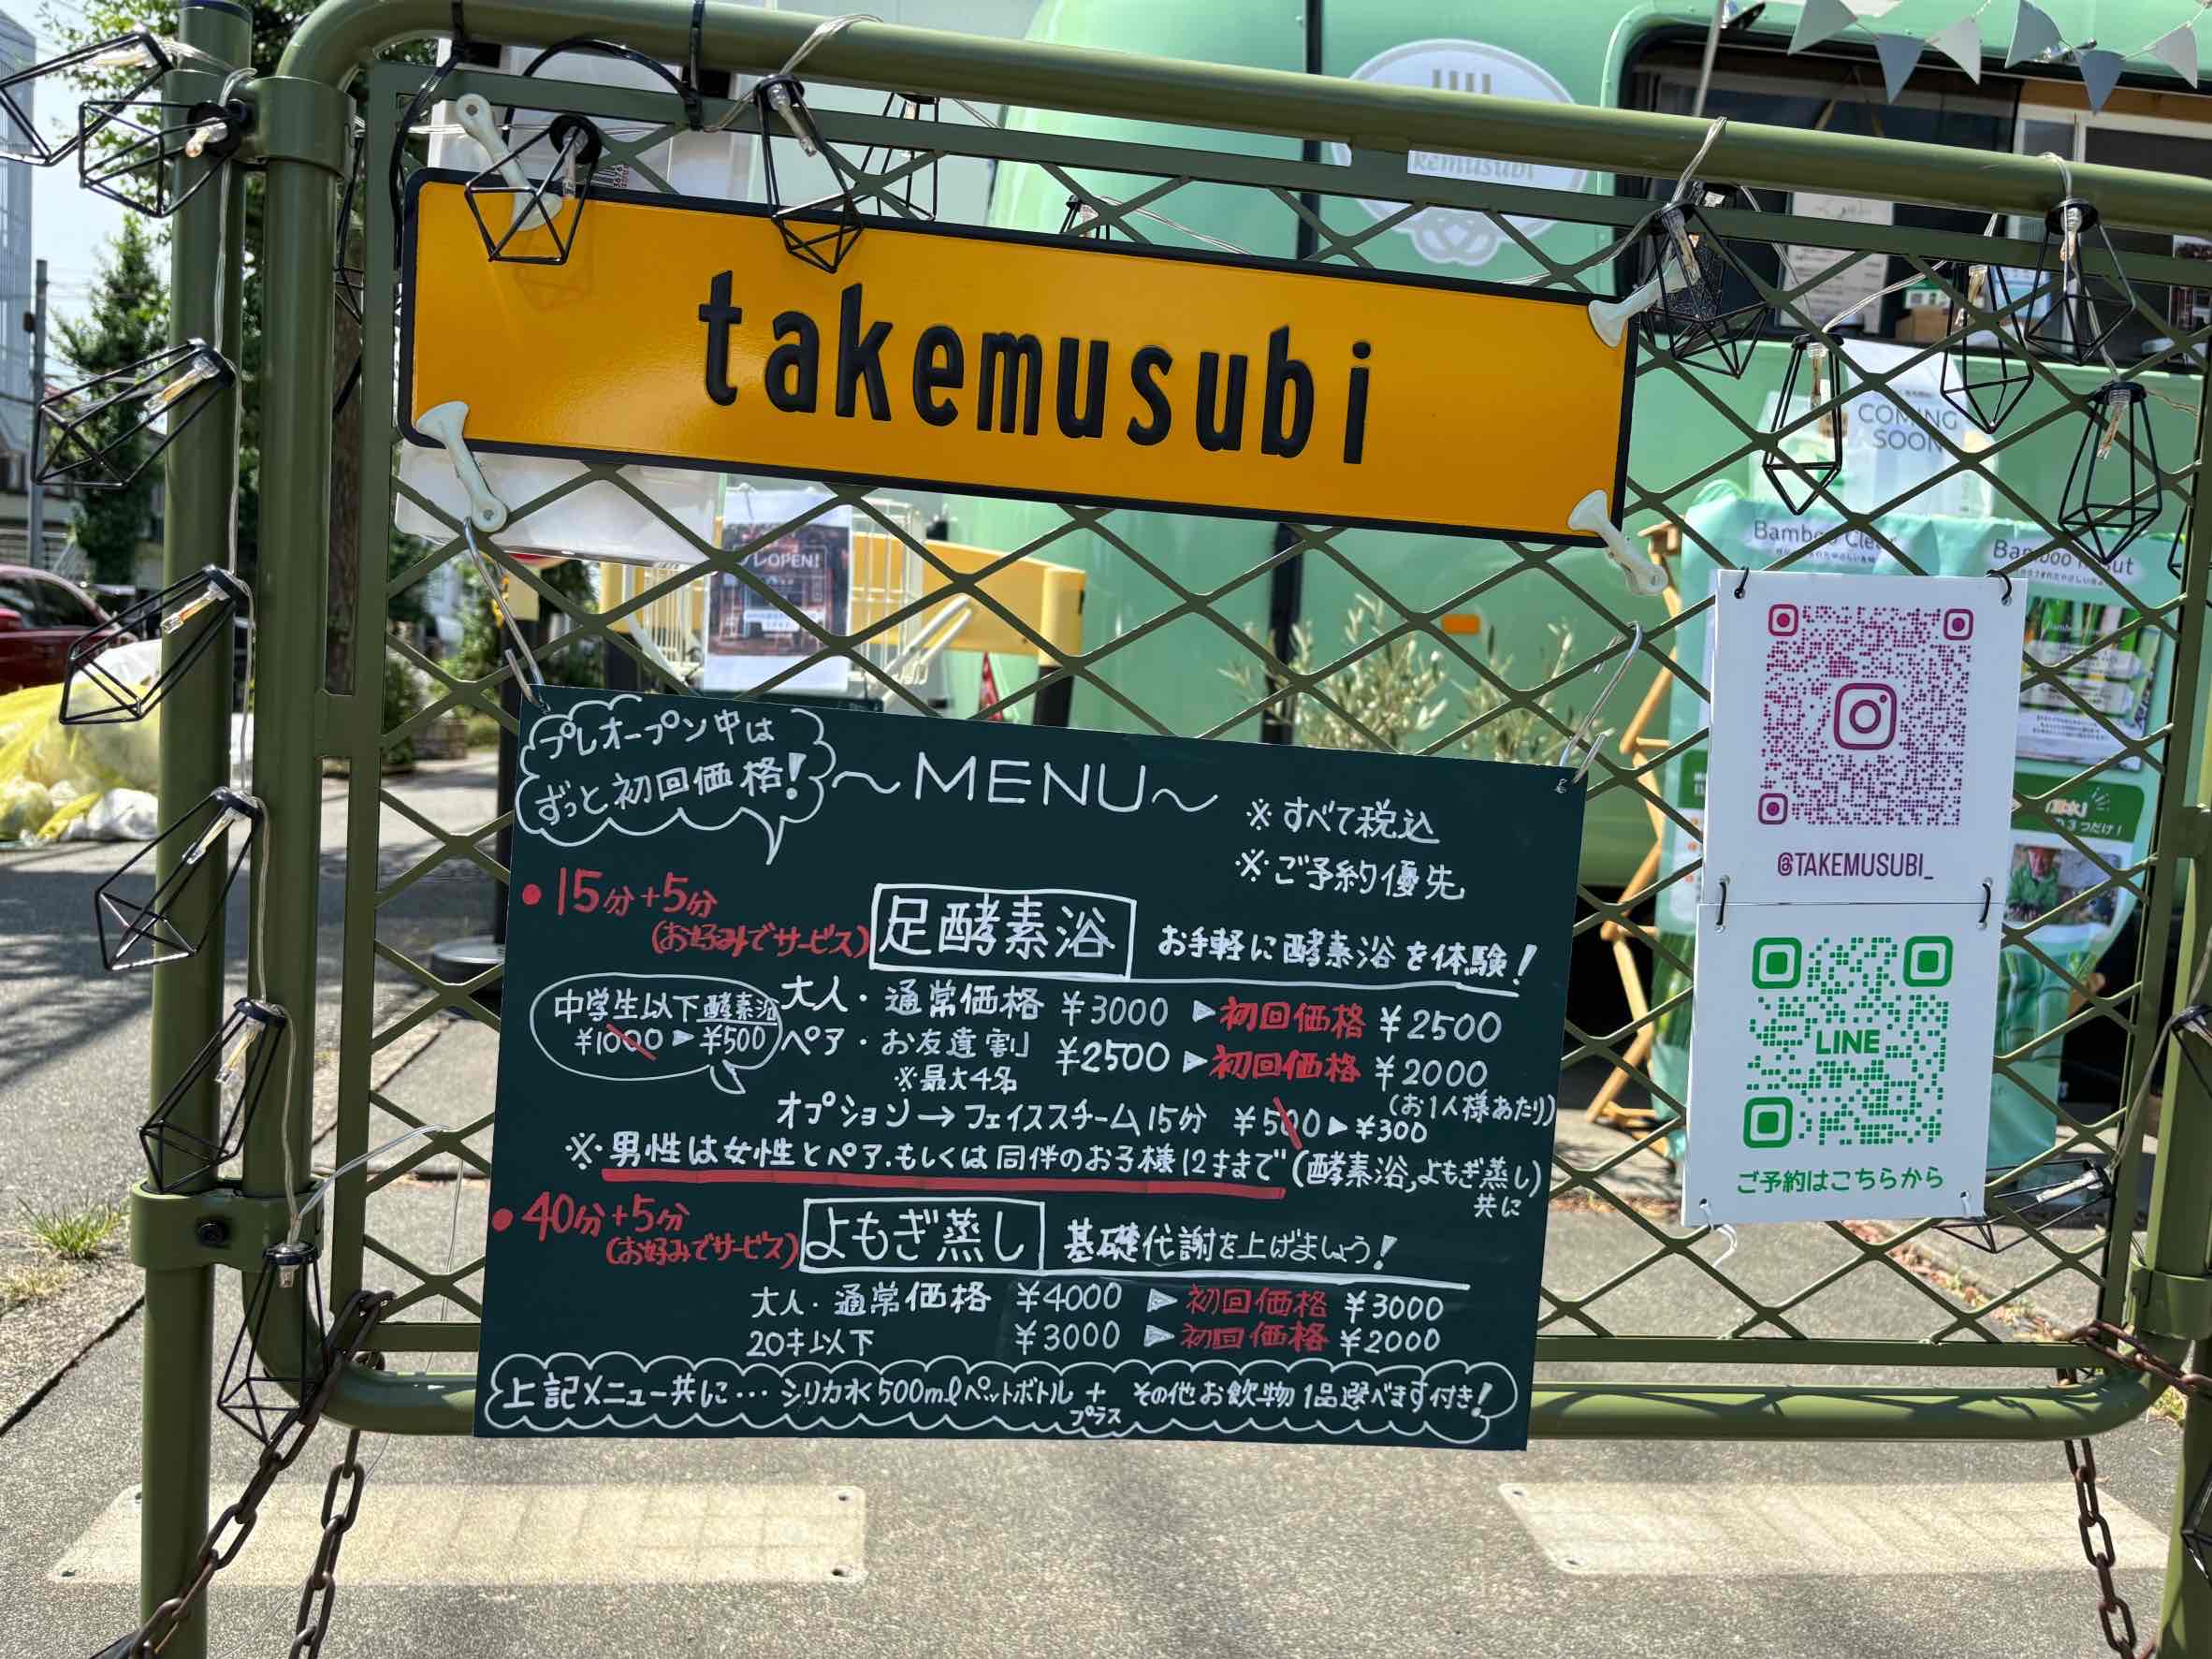 kemusubi
takemusubi
COMING
SOON
Bamboo Clear
プレOPEN!
プレオープン中は
ずっと初回価格!
～MENU～
※すべて税込
※ご予約優先
•15分+5分
(お好みでサービス)
足酵素浴
お手軽に酵素浴を体験!
中学生以下酵素浴
¥1000▶¥500
大人・通常価格 ¥3000 ▶初回価格 ¥2500
ペア・お友達割 ¥2500 ▶初回価格 ¥2000
※最大4名
(お1人様あたり)
オプション→フェイススチーム15分 ¥500▶¥300
※男性は女性とペア.もしくは同伴のお子様12才まで(酵素浴,よもぎ蒸し)
共に
•40分+5分
(お好みでサービス)
よもぎ蒸し
基礎代謝を上げましょう!
大人・通常価格 ¥4000 ▶初回価格 ¥3000
20才以下 ¥3000 ▶初回価格 ¥2000
上記メニュー共に…シリカ水500mlペットボトル+その他お飲物1品選べます付き!
プラス
@TAKEMUSUBI_
LINE
ご予約はこちらから